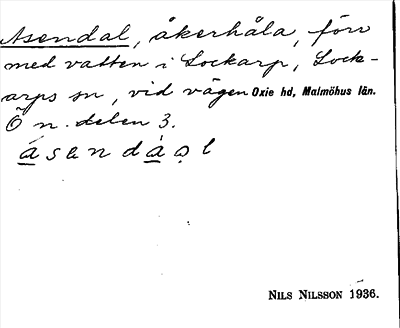 Asendal, åkerhåla, förr
med vatten i Lockarp, Lock-
arps sn, vid vägen Oxie hd, Malmöhus län.
Ö n. delen 3.
ásandàl
NILS NILSSON 1936.